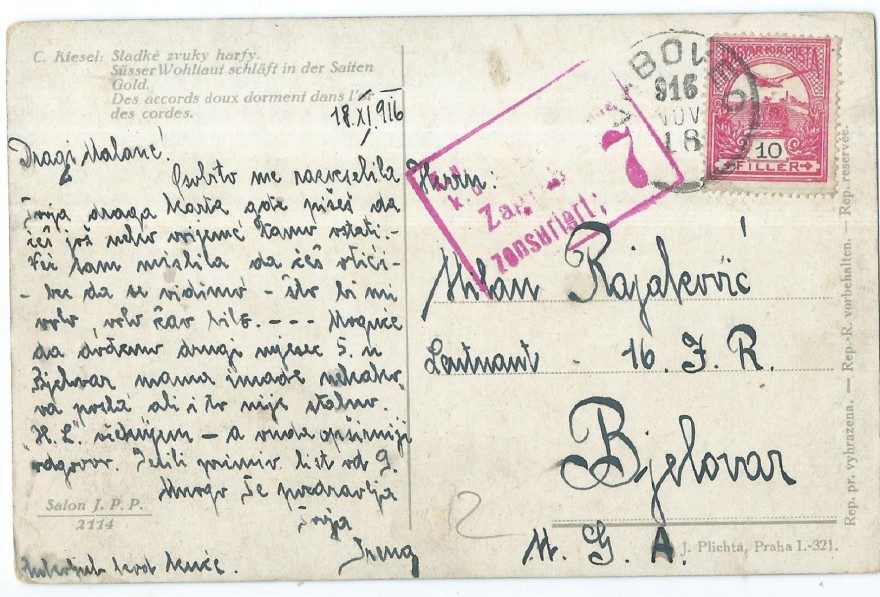 C. Kiesel: Sladké zvuky harfy.
Süsser Wohllaut schläft in der Saiten
Gold.
Des accords doux dorment dans l'or
des cordes.
18. XI. 916
Dragi Milane!
me razveselila
Tvoja draga karta gdje pišeš da
ćeš još neko vrijeme tamo ostati.-
sam mislila da ćeš otići-
- bez da se vidimo - što bi mi
vrlo, vrlo žao bilo. - - - Moguće
da dođemo drugi mjesec 5. u
Bjelovar mama imade
posla ali i to nije stalno.
"H. L." očekujem - a onda opširniji
odgovor. Jesi li primio list od G.
Mnogo Te pozdravlja
Tvoja
Irena
kod kuće.
Salon J. P. P.
2114
Herrn.
Milan Rajaković
Leutnant - 16. I. R.
Bjelovar
M. G. A.
2
k.
Za
zensuriert;
7
916
NOV
18
MAGYAR KIR. POSTA
10
FILLÉR
Rep. pr. vyhrazena. — Rep.-R. vorbehalten. — Rep. reservée.
J. Plichta, Praha I.-321.